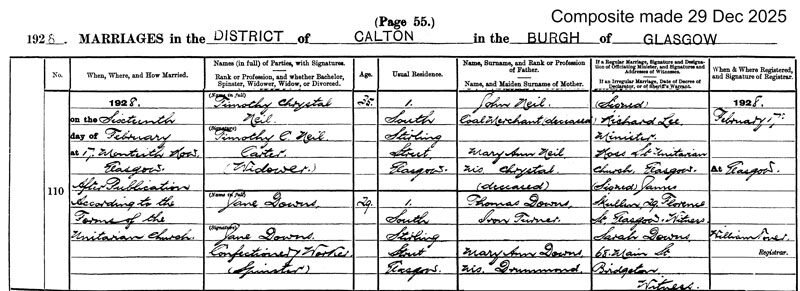 Composite made 29 Dec 2025
(Page 55.)
1928. MARRIAGES in the DISTRICT of CALTON in the BURGH of GLASGOW
No.
When, Where, and How Married.
Names (in full) of Parties, with Signatures.
Rank or Profession, and whether Bachelor, Spinster, Widower, Widow, or Divorced.
Age.
Usual Residence.
Name, Surname, and Rank or Profession of Father.
Name, and Maiden Surname of Mother.
If a Regular Marriage, Signature and Designation of Officiating Minister, and Signatures and Addresses of Witnesses.
If an Irregular Marriage, Date of Decree of Declarator, or of Sheriff's Warrant.
When & Where Registered, and Signature of Registrar.
110
1928.
on the Sixteenth
day of February
at 17, Monteith Row,
Glasgow
After Publication
According to the
Forms of the
Unitarian Church.
(Name in full)
Timothy Chrystal
Neil.
(Signature)
Timothy C. Neil
Carter
(Widower)
(Name in full)
Jane Downs.
(Signature)
Jane Downs.
Confectionery Worker
(Spinster)
29.
1.
South
Stirling
Street
Glasgow.
1.
South
Stirling
Street
Glasgow.
John Neil.
Coal Merchant (deceased)
Mary Ann Neil
ms. Chrystal
(deceased)
Thomas Downs,
Iron Turner.
Mary Ann Downs,
ms. Drummond.
(Signed)
Richard Lee.
Minister.
Ross St. Unitarian
Church, Glasgow.
(Signed) James
29 Florence
St. Glasgow. Witness
Sarah Downs,
65 Main St.
Bridgeton
Witness.
1928.
February 17th
At Glasgow.
William
Registrar.